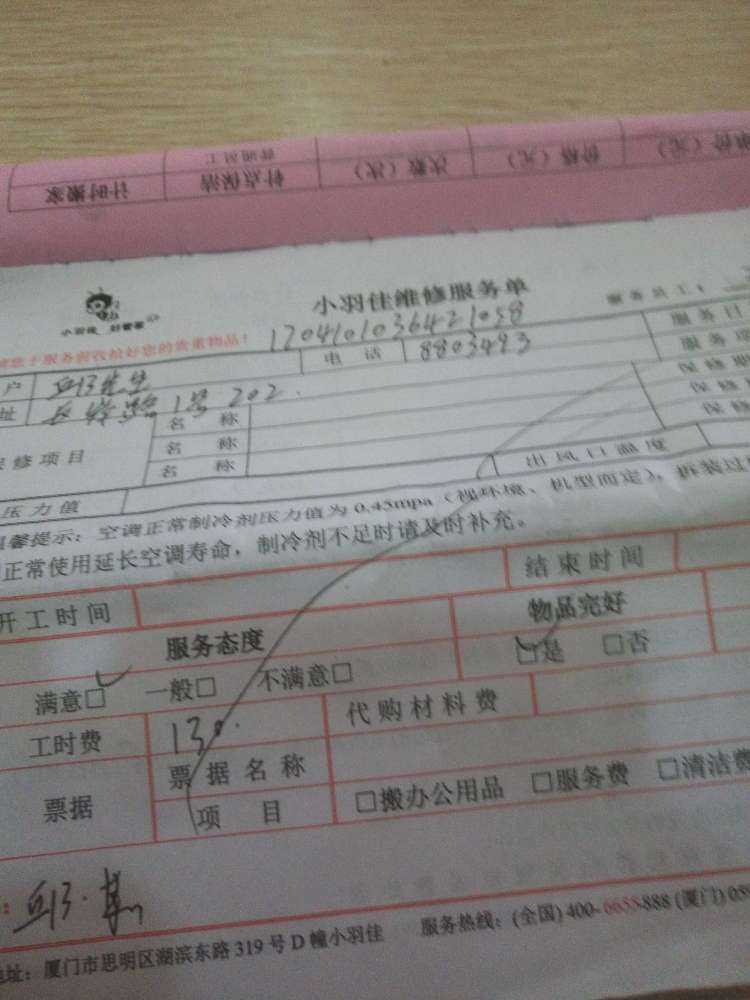 计时搬家 钟点保洁 次数（次） 价格（元）
普通员工
小羽佳维修服务单
服务员工：
服务前收拾好您的贵重物品！
1204101036421058
户 邱先生 电话 8803493
址 1号 202
修项目 名称
名称
名称
服务日
保修
保修
压力值 出风口温度
馨提示：空调正常制冷剂压力值为0.45mpa（视环境、机型而定），拆装过
正常使用延长空调寿命，制冷剂不足时请及时补充。
开工时间 结束时间
服务态度 物品完好
满意□ 一般□ 不满意□ □是 □否
工时费 130. 代购材料费
票据 票据名称
项目 □搬办公用品 □服务费 □清洁费
地址：厦门市思明区湖滨东路319号D幢小羽佳 服务热线：(全国) 400-6655-888 (厦门) 059